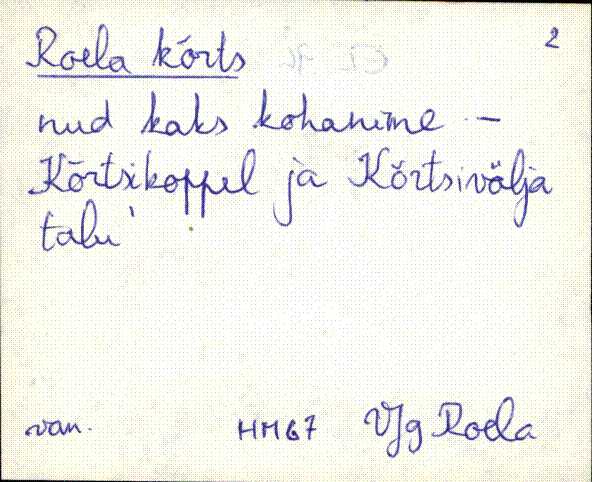 Roela kõrts 2
nud kaks kohanime -
Kõrtsikoppel ja Kõrtsivälja
talu'
van. HM67 VJg Roela